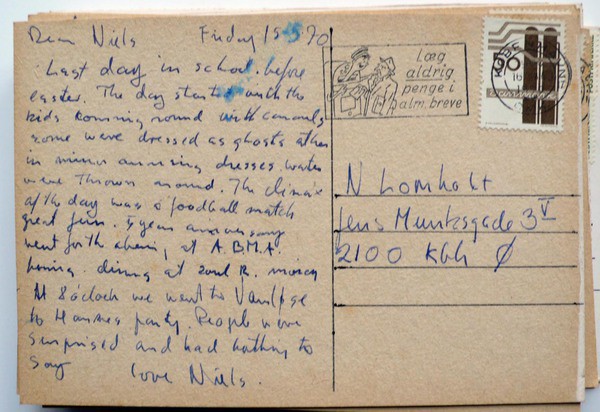 Dear Niels Friday 19 70
Last day in school before
easter. The day started with the
kids running round with canonds
some were dressed as ghosts other
in minor amusing dresses. water
were thrown around. The climax
of the day was a foodball match
great fun. 5 years anniversary
went for the at A.B.M.A.
dining at
At 8 o'clock we went to
to Hannes party. People were
surprised and had nothing to
say love Niels.
Læg
aldrig
penge i
alm. breve
16
DANMARK
N Lomholt
Jens Munksgade 3 V
2100 Kbh Ø